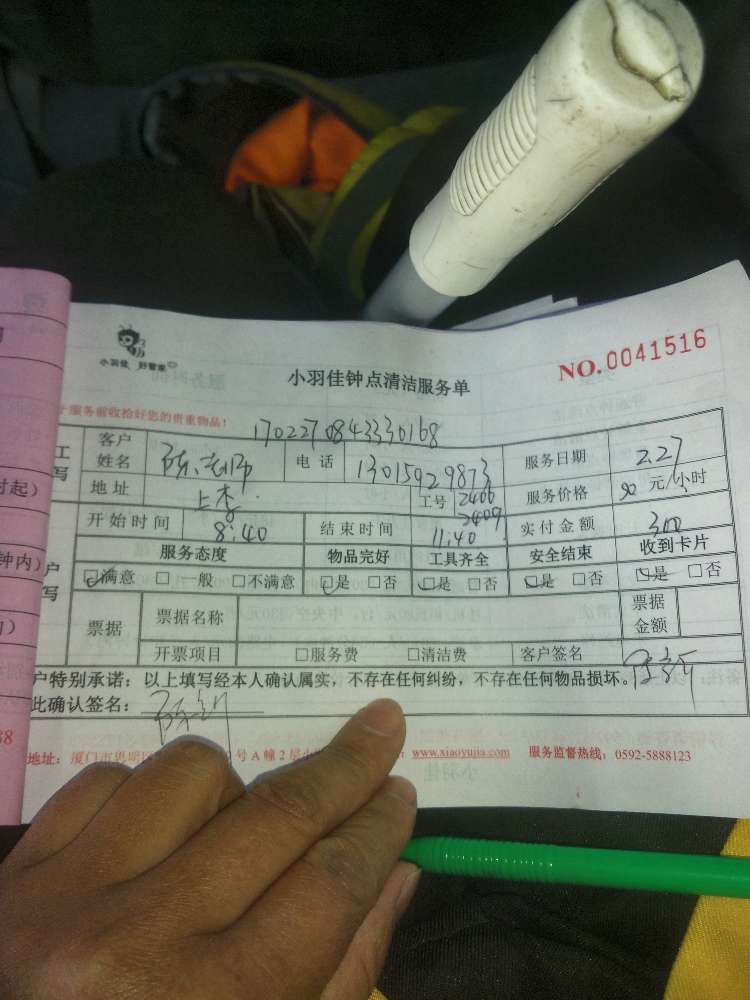 小羽佳 好管家
小羽佳钟点清洁服务单
NO.0041516
服务前收拾好您的贵重物品！
1702270843330168
客户姓名 电话 13015929873 服务日期 2.27
地址 上李 工号 2406 2409 服务价格 90 元/小时
开始时间 8:40 结束时间 11:40 实付金额 300
服务态度 物品完好 工具齐全 安全结束 收到卡片
☑满意 □一般 □不满意 ☑是 □否 ☑是 □否 ☑是 □否 ☑是 □否
票据 票据名称 票据金额
开票项目 □服务费 □清洁费 客户签名
户特别承诺：以上填写经本人确认属实，不存在任何纠纷，不存在任何物品损坏。
此确认签名：
地址：厦门市思明区 号A幢2层小 www.xiaoyujia.com 服务监督热线：0592-5888123